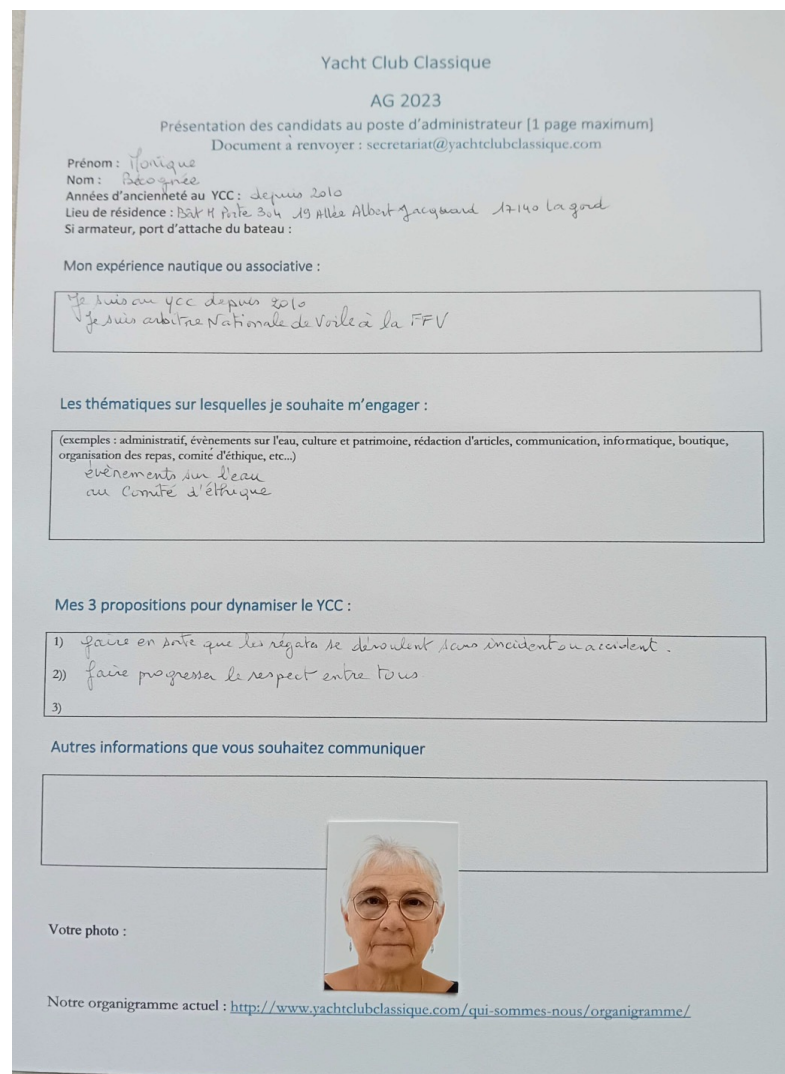 Yacht Club Classique
AG 2023
Présentation des candidats au poste d'administrateur [1 page maximum]
Document à renvoyer : secretariat@yachtclubclassique.com
Prénom : Monique
Nom : Bécognée
Années d'ancienneté au YCC : depuis 2010
Lieu de résidence : Bât H Porte 304 19 Allée Albert Jacquard 17140 Lagord
Si armateur, port d'attache du bateau :
Mon expérience nautique ou associative :
Je suis au ycc depuis 2010
Je suis arbitre Nationale de Voile à la FFV
Les thématiques sur lesquelles je souhaite m'engager :
(exemples : administratif, évènements sur l'eau, culture et patrimoine, rédaction d'articles, communication, informatique, boutique,
organisation des repas, comité d'éthique, etc...)
évènements sur l'eau
au Comité d'éthique
Mes 3 propositions pour dynamiser le YCC :
1) faire en sorte que les régates se déroulent sans incident ou accident.
2)) faire progresser le respect entre tous
3)
Autres informations que vous souhaitez communiquer
Votre photo :
Notre organigramme actuel : http://www.yachtclubclassique.com/qui-sommes-nous/organigramme/